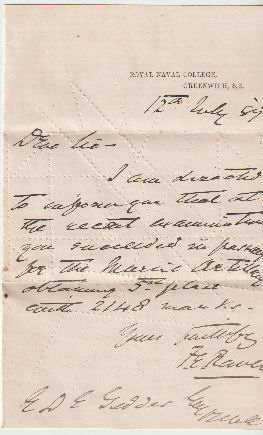 ROYAL NAVAL COLLEGE,
GREENWICH, S.E.
12th July 89
Dear Sir-
I am directed
to inform you that at
the recent examination
you succeeded in passing
for the Marine Artillery
obtaining 5th place
with 2148 marks.
Yours faithfully
E D E Geddes